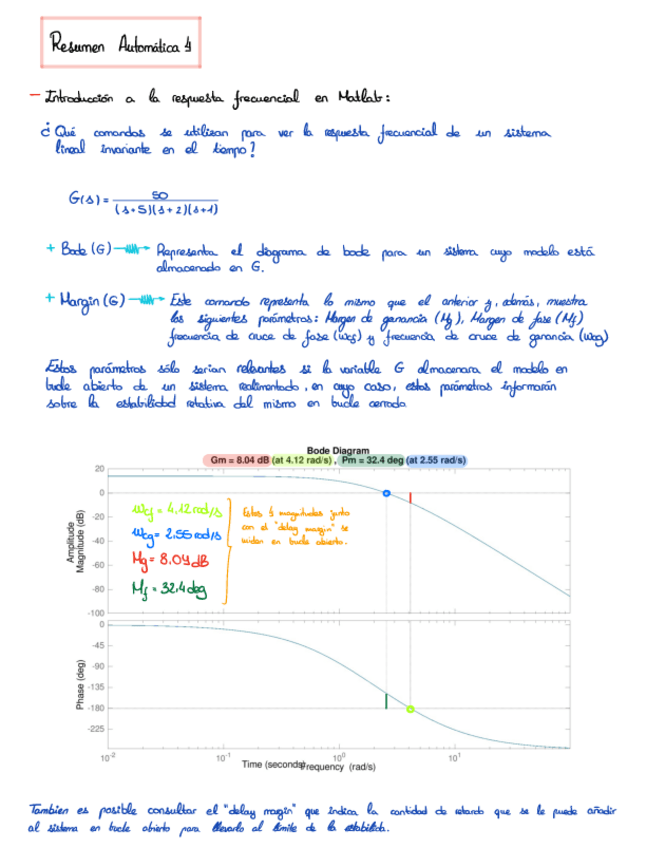 Resumen Automática 4
- Introducción a la respuesta frecuencial en Matlab:
¿Qué comandos se utilizan para ver la respuesta frecuencial de un sistema
lineal invariante en el tiempo?
G(s) = 50
(s+5)(s+2)(s+1)
+ Bode (G) → Representa el diagrama de bode para un sistema cuyo modelo está
almacenado en G.
+ Margin (G) → Este comando representa lo mismo que el anterior y, además, muestra
los siguientes parámetros: Margen de ganancia (Mg), Margen de fase (Mf)
frecuencia de cruce de fase (wcf) y frecuencia de cruce de ganancia (wcg)
Estos parámetros sólo serian relevantes si la variable G almacenara el modelo en
bucle abierto de un sistema realimentado, en cuyo caso, estos parámetros informarán
sobre la estabilidad relativa del mismo en bucle cerrado
Bode Diagram
Gm = 8.04 dB (at 4.12 rad/s) , Pm = 32.4 deg (at 2.55 rad/s)
20
0
-20
-40
-60
-80
-100
Amplitude
Magnitude (dB)
wcf = 4.12 rad/s
wcg = 2.55 rad/s
Mg = 8.04 dB
Mf = 32.4 deg
Estas 4 magnitudes junto
con el "delay margin" se
miden en bucle abierto.
0
-45
-90
-135
-180
-225
Phase (deg)
10⁻² 10⁻¹ 10⁰ 10¹
Time (seconds)
Frequency (rad/s)
Tambien es posible consultar el "delay magin" que indica la cantidad de retardo que se le puede añadir
al sistema en bucle abierto para llevarlo al límite de la estabilida.